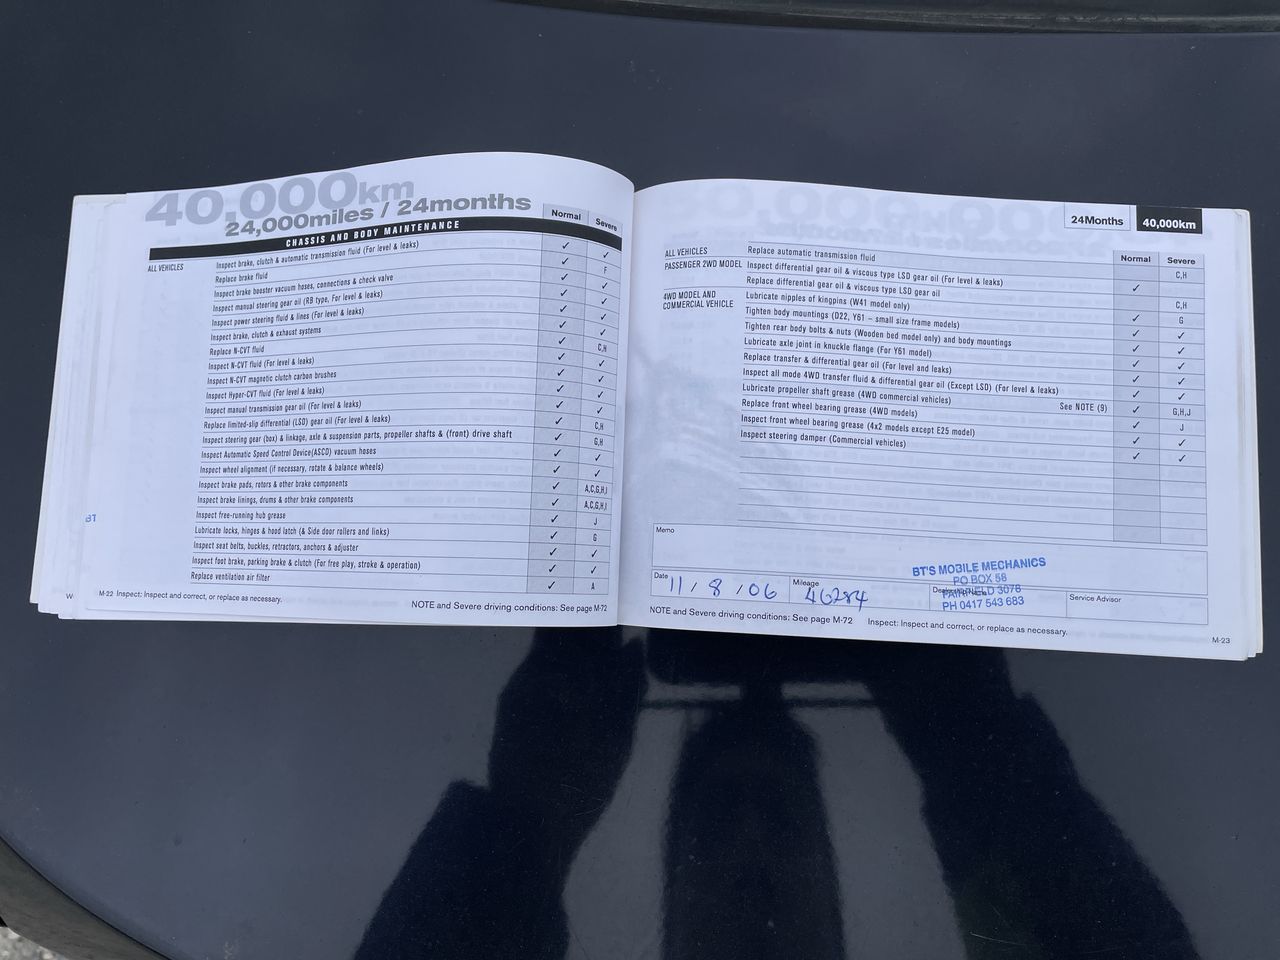 40,000km
24,000miles / 24months
Normal Severe
CHASSIS AND BODY MAINTENANCE
ALL VEHICLES
Inspect brake, clutch & automatic transmission fluid (For level & leaks) ✓ ✓
Replace brake fluid ✓ F
Inspect brake booster vacuum hoses, connections & check valve ✓ ✓
Inspect manual steering gear oil (RB type, For level & leaks) ✓ ✓
Inspect power steering fluid & lines (For level & leaks) ✓ ✓
Inspect brake, clutch & exhaust systems ✓ ✓
Replace N-CVT fluid C,H
Inspect N-CVT fluid (For level & leaks) ✓ ✓
Inspect N-CVT magnetic clutch carbon brushes ✓ ✓
Inspect Hyper-CVT fluid (For level & leaks) ✓ ✓
Inspect manual transmission gear oil (For level & leaks) ✓ ✓
Replace limited-slip differential (LSD) gear oil (For level & leaks) ✓ C,H
Inspect steering gear (box) & linkage, axle & suspension parts, propeller shafts & (front) drive shaft ✓ G,H
Inspect Automatic Speed Control Device(ASCD) vacuum hoses ✓ ✓
Inspect wheel alignment (if necessary, rotate & balance wheels) ✓ ✓
Inspect brake pads, rotors & other brake components ✓ A,C,G,H,I
Inspect brake linings, drums & other brake components ✓ A,C,G,H,I
Inspect free-running hub grease ✓ J
Lubricate locks, hinges & hood latch (& Side door rollers and links) ✓ G
Inspect seat belts, buckles, retractors, anchors & adjuster ✓ ✓
Inspect foot brake, parking brake & clutch (For free play, stroke & operation) ✓ ✓
Replace ventilation air filter ✓ A
M-22 Inspect: Inspect and correct, or replace as necessary.
NOTE and Severe driving conditions: See page M-72
BT
24Months 40,000km
Normal Severe
ALL VEHICLES Replace automatic transmission fluid C,H
PASSENGER 2WD MODEL Inspect differential gear oil & viscous type LSD gear oil (For level & leaks) ✓
Replace differential gear oil & viscous type LSD gear oil C,H
4WD MODEL AND
COMMERCIAL VEHICLE
Lubricate nipples of kingpins (W41 model only) ✓ G
Tighten body mountings (D22, Y61 – small size frame models) ✓ ✓
Tighten rear body bolts & nuts (Wooden bed model only) and body mountings ✓ ✓
Lubricate axle joint in knuckle flange (For Y61 model) ✓ ✓
Replace transfer & differential gear oil (For level and leaks) ✓ ✓
Inspect all mode 4WD transfer fluid & differential gear oil (Except LSD) (For level & leaks) ✓ ✓
Lubricate propeller shaft grease (4WD commercial vehicles) See NOTE (9) ✓ G,H,J
Replace front wheel bearing grease (4WD models) ✓ J
Inspect front wheel bearing grease (4x2 models except E25 model) ✓ ✓
Inspect steering damper (Commercial vehicles) ✓ ✓
Memo
Date 11 / 8 / 06
Mileage 46284
BT'S MOBILE MECHANICS
PO BOX 58
FAIRFIELD 3078
PH 0417 543 683
Service Advisor
NOTE and Severe driving conditions: See page M-72 Inspect: Inspect and correct, or replace as necessary.
M-23